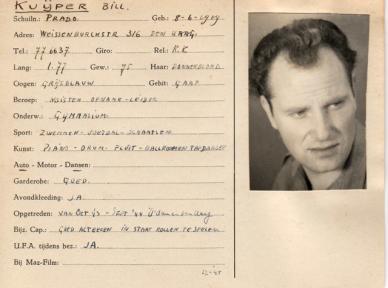 KUŸPER BILL.
Schuiln.: PRADO. Geb.: 8-6-1909
Adres: WEISSENBURCHSTR 3/6 DEN HAAG.
Tel.: 776637 Giro: Rel.: R.K
Lang: 1.77 Gew.: 75 Haar: DONKERBLOND
Oogen: GRIJSBLAUW Gebit: GAAF
Beroep:
Onderw.: GYMNASIUM
Sport: ZWEMMEN - VOETBAL - SCHAATSEN
Kunst: PIANO - DRUM - FLUIT - BALLROOM EN TAPDANSEN
Auto - Motor - Dansen:
Garderobe: GOED.
Avondkleeding: JA
Opgetreden:
Bijz. Cap.: GOED ALTEEKEN IN STAAT ROLLEN TE SPELEN
U.F.A. tijdens bez.: JA.
Bij Maz-Film: